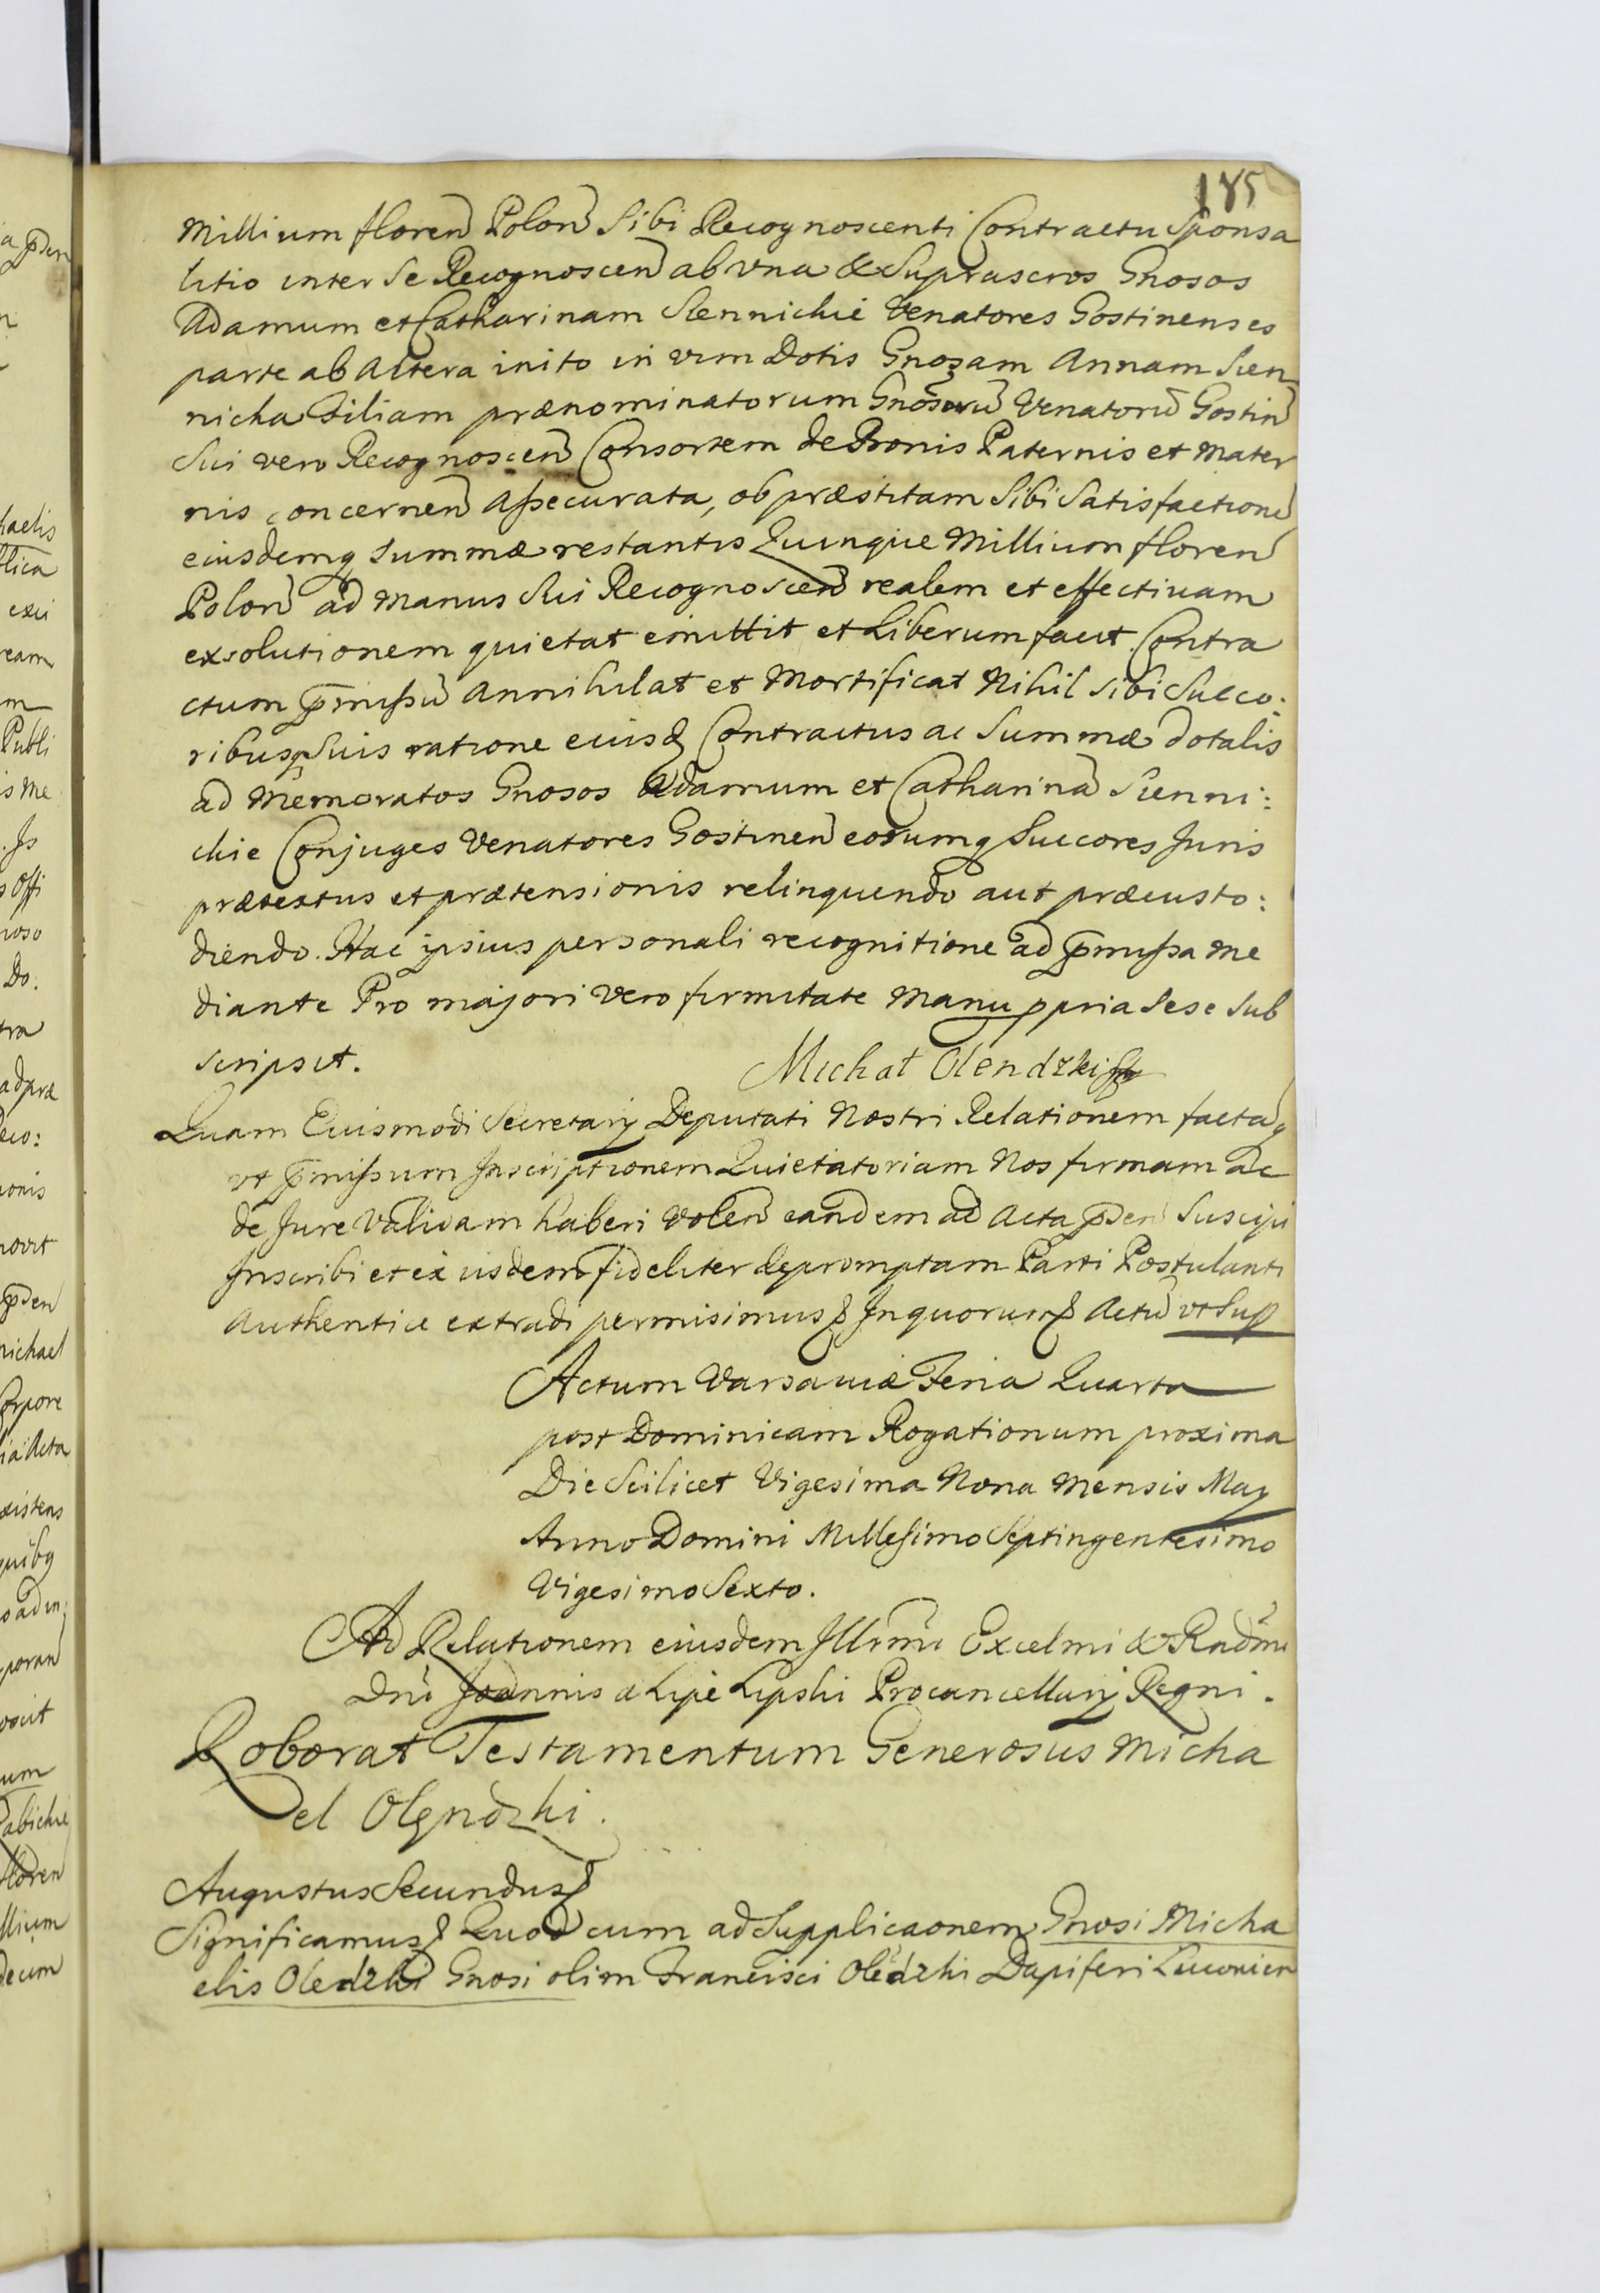 185
Millium floren Polon Sibi Recognoscenti Contractu Sponsa
litio inter se Recognoscen ab una & Suprascros Gnosos
Adamum et Catharinam Siennichie Venatores Gostinenses
parte ab Altera inito in vim Dotis Gnosam Annam Sien
nicha Filiam prænominatorum Gnosorũ Venatorũ Gostin
Sui vero Recognoscen Consortem de Bonis Paternis et Mater
nis concernen Assecurata, ob præstitam Sibi Satisfactionẽ
eiusdemq summæ restantis Quinque Millium floren
Polon ad Manus Sui Recognoscen realem et effectivam
exsolutionem quietat emittit et Liberum facit. Contra
ctum p̃missũ Annihilat et Mortificat Nihil Sibi Succo:
ribusq Suis ratione eiusd Contractus ac Summæ dotalis
ad Memoratos Gnosos Adamum et Catharinã Sienni:
chie Conjuges Venatores Gostinen eorumq Succores Juris
prætextus et prætensionis relinquendo aut præcusto:
diendo. Hac ipsius personali recognitione ad p̃missa me
diante Pro majori vero firmitate Manu ppria Sese Sub
scripsit. Michał Olendzki
Quam Eiusmodi Secretarij Deputati Nostri Relationem factãq
vt p̃missum Inscriptionem Quietatoriam Nos firmam ac
de Jure Validam haberi Volen eandem ad Acta p̃sen Suscipi
Inscribi et ex iisdem fideliter depromptam Parti Postulanti
Authentice extradi permisimus Inquorum Actũ vt Sup
Actum Varsaviæ Feria Quarta
post Dominicam Rogationum proxima
Die Scilicet Vigesima Nona Mensis May
Anno Domini Millesimo Septingentesimo
Vigesimo Sexto.
Ad Relationem eiusdem Illrmi Excelmi & Rndmi
Dni Joannis a Lipe Lipski Procancellarij Regni.
Roborat Testamentum Generosus Micha
el Olęndzki.
Augustus Secundus
Significamus Quod cum ad Supplicaonem Gnosi Micha
elis Olędzki Gnosi olim Francisci Olędzki Dapiferi Liwonien